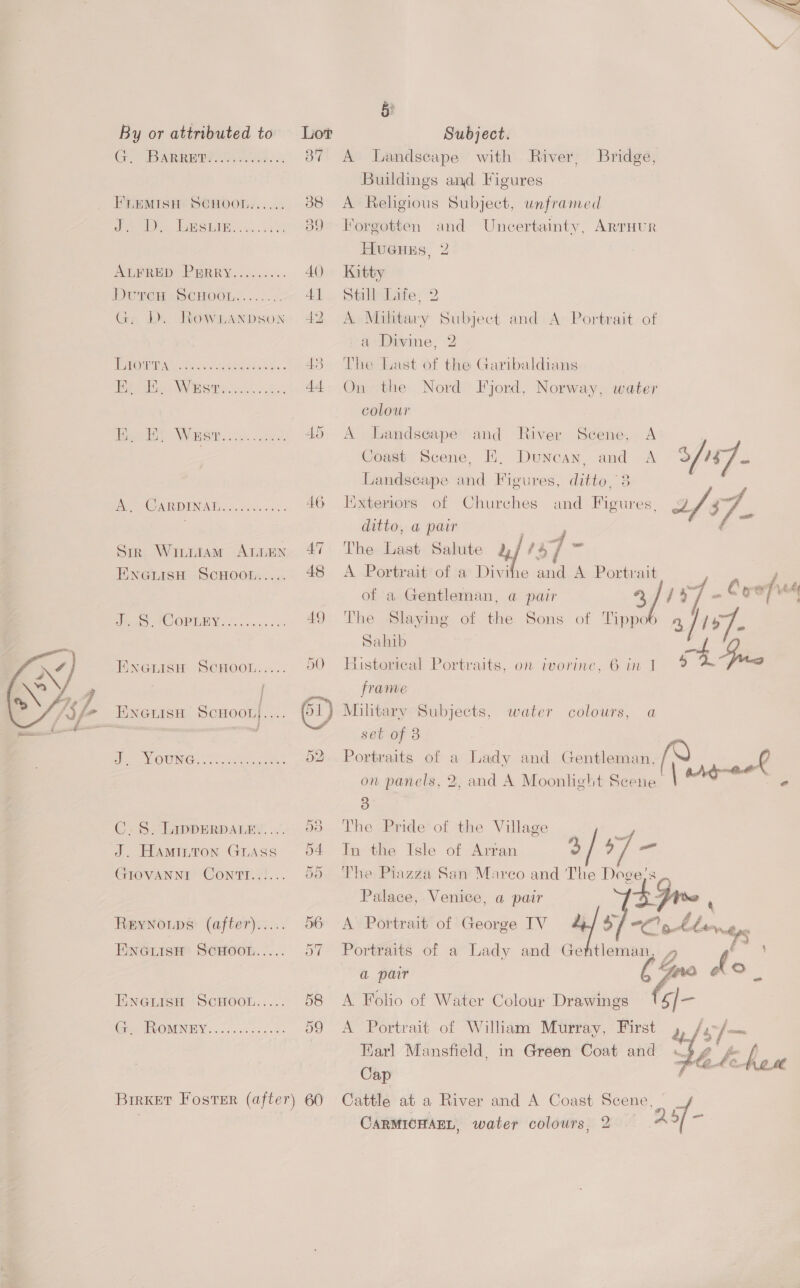 5
By or attributed to Lot Subject.
G. BARRET............ 37 A Landscape with River, Bridge,
Buildings and Figures
FLEMISH SCHOOL...... 38 A Religious Subject, unframed
J. D. LESLIE.......... 39 Forgotten and Uncertainty, ARTHUR
HUGHES, 2
ALFRED PERRY......... 40 Kitty
DUTCH SCHOOL........ 41 Still Life, 2
G. D. ROWLANDSON 42 A Military Subject and A Portrait of
a Divine, 2
LIOTTA ............... 43 The Last of the Garibaldians
E. E. WEST........... 44 On the Nord Fjord, Norway, water
colour
E. E. WEST........... 45 A Landscape and River Scene, A
Coast Scene, E. DUNCAN, and A 3/15/-
Landscape and Figures, ditto, 3
A. CARDINAL........... 46 Exteriors of Churches and Figures, 2/5/-
ditto, a pair
SIR WILLIAM ALLEN 47 The Last Salute 4/15/-
ENGLISH SCHOOL..... 48 A Portrait of a Divine and A Portrait
of a Gentleman, a pair 3/15/-
J. S. COPLEY........... 49 The Slaying of the Sons of Tippoo 3/15/-
Sahib
ENGLISH SCHOOL..... 50 Historical Portraits, on ivorine, 6 in 1
frame
ENGLISH SCHOOL..... 51 Military Subjects, water colours, a
set of 3
J. YOUNG............. 52 Portraits of a Lady and Gentleman,
on panels, 2, and A Moonlight Scene
3
C. S. LIDDERDALE..... 53 The Pride of the Village
J. HAMILTON GLASS 54 In the Isle of Arran 3/5/-
GIOVANNI CONTI...... 55 The Piazza San Marco and The Doge's
Palace, Venice, a pair
REYNOLDS (after)..... 56 A Portrait of George IV 4/5/-
ENGLISH SCHOOL..... 57 Portraits of a Lady and Gentleman,
a pair 6 Gns do
ENGLISH SCHOOL..... 58 A Folio of Water Colour Drawings 15/-
G. ROMNEY............ 59 A Portrait of William Murray, First 4/5/-
Earl Mansfield, in Green Coat and
Cap
BIRKET FOSTER (after) 60 Cattle at a River and A Coast Scene,
CARMICHAEL, water colours, 2 25/-